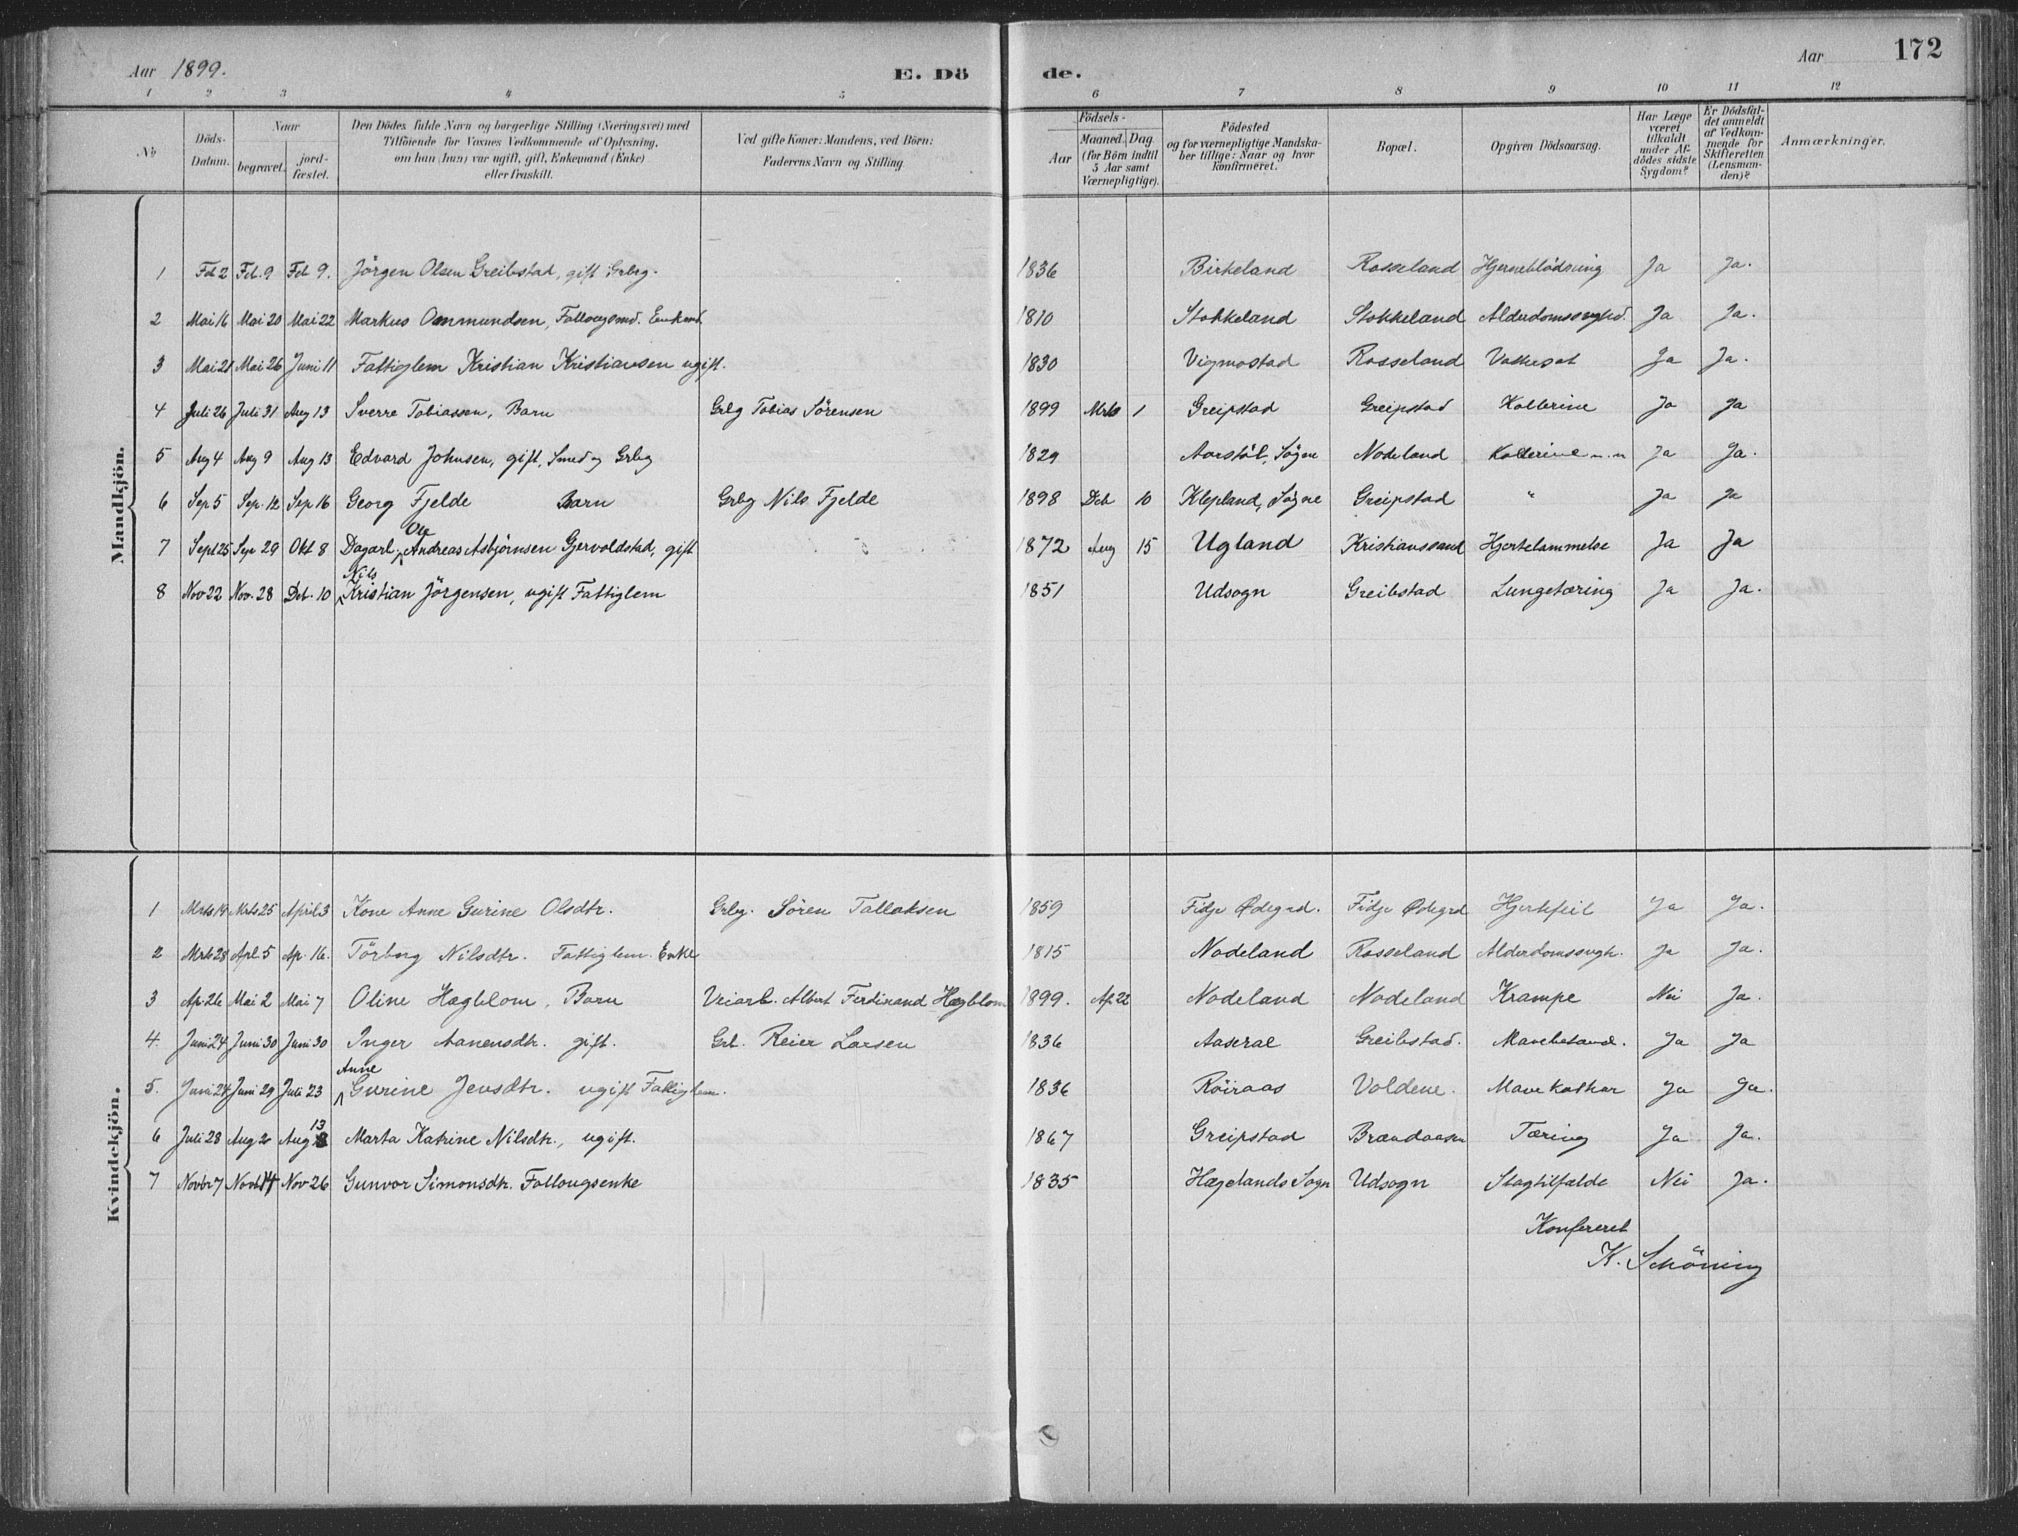 Aar 1899. E. Dö de. Aar 172
1 2 3 4 5 6 7 8 9 10 11 12
No
Döds-Datum.
Naar
begravet.
jord-fæstet.
Den Dödes fulde Navn og borgerlige Stilling (Næringsvei) med
Tilföiende for Voxnes Vedkommende af Oplysning,
om han (hun) var ugift, gift, Enkemand (Enke)
eller fraskilt.
Ved gifte Koner: Mandens, ved Börn:
Faderens Navn og Stilling.
Födsels-
Aar
Maaned. Dag.
(for Börn indtil
5 Aar samt
Værnepligtige).
Födested
og for værnepligtige Mandska-
ber tillige: Naar og hvor
konfirmeret.
Bopæl.
Opgiven Dödsaarsag.
Har Læge
været
tilkaldt
under Af-
dödes sidste
Sygdom?
Er Dödsfal-
det anmeldt
af Vedkom-
mende for
Skifteretten
(Lensman-
den)?
Anmærkninger.
Mandkjön.
1 Feb 2 Feb. 9 Feb 9. Jörgen Olsen Greibstad, gift Grbrg. 1836 Birkeland Rosseland Hjerneblödning Ja Ja.
2 Mai 16 Mai 20 Mai 22 Markus Ommundsen, Follougsmd. Enkemd. 1810 Stokkeland Stokkeland Alderdomssvaghed. Ja Ja.
3 Mai 21 Mai 26 Juni 11 Fattiglem Kristian Kristiansen ugift. 1830 Vigmostad Rosseland Vattersot Ja Ja.
4 Juli 26 Juli 31 Aug 13 Sverre Tobiassen, Barn Grbg Tobias Sörensen 1899 Mrts 1 Greipstad Greipstad Kollerine Ja Ja
5 Aug 4 Aug 9 Aug 13 Edvard Johnsen, gift, Smed og Grbg 1829 Aarstöl, Sögne Nodeland Kollerine Ja Ja.
6 Sep 5 Sep. 12 Sep 16 Georg Fjelde Barn Grbg Nils Fjelde 1898 Deb 10 Klepland, Sögne Greipstad " Ja Ja
Ole
7 Sept 25 Sep 29 Okt 8 Dagarb. Andreas Asbjörnsen Gjervoldstad, gift 1872 Aug 15 Ugland Kristianssand Hjertelammelse Ja Ja
Nils
8 Nov 22 Nov. 28 Deb. 10 Kristian Jörgensen, ugift Fattiglem 1851 Udsogn Greibstad Lungetæring Ja Ja.
Kvindekjön.
1 Mrts 19 Mrts 25 April 3 Kone Anne Gurine Olsdtr. Grbg. Sören Tallaksen 1859 Fidje Ødegrd. Fidje Ødegrd Hjertefeil Ja Ja.
2 Mrts 28 Apl 5 Ap. 16. Törborg Nilsdtr. Fattiglem. Enke 1815 Nodeland Rosseland Alderdomssvgh. Ja Ja.
3 Ap. 26 Mai 2 Mai 7 Oline Hægblom, Barn Veiarb. Albert Ferdinand Hægblom 1899. Ap 22 Nodeland Nodeland Krampe Nei Ja.
4. Juni 24 Juni 30 Juni 30 Inger Aanensdtr. gift. Grb. Reier Larsen 1836 Aaseral Greibstad. Ja Ja
Anne
5. Juni 24 Juni 29 Juli 23 Gurine Jensdtr. ugift Fattiglem. 1836 Röiraas Voldene. Mave kathar Ja Ja.
6 Juli 28 Aug 2 Aug 13 Marta Katrine Nilsdtr., ugift. 1867 Greipstad Brændaasen Tæring Ja Ja.
7 Novbr 7 Novb 14 Nov 26 Gunvor Simonsdtr. Follougsenke 1835 Hægelands Sogn Udsogn Slagtilfælde Nei Ja.
Konfereret
K. Schöning